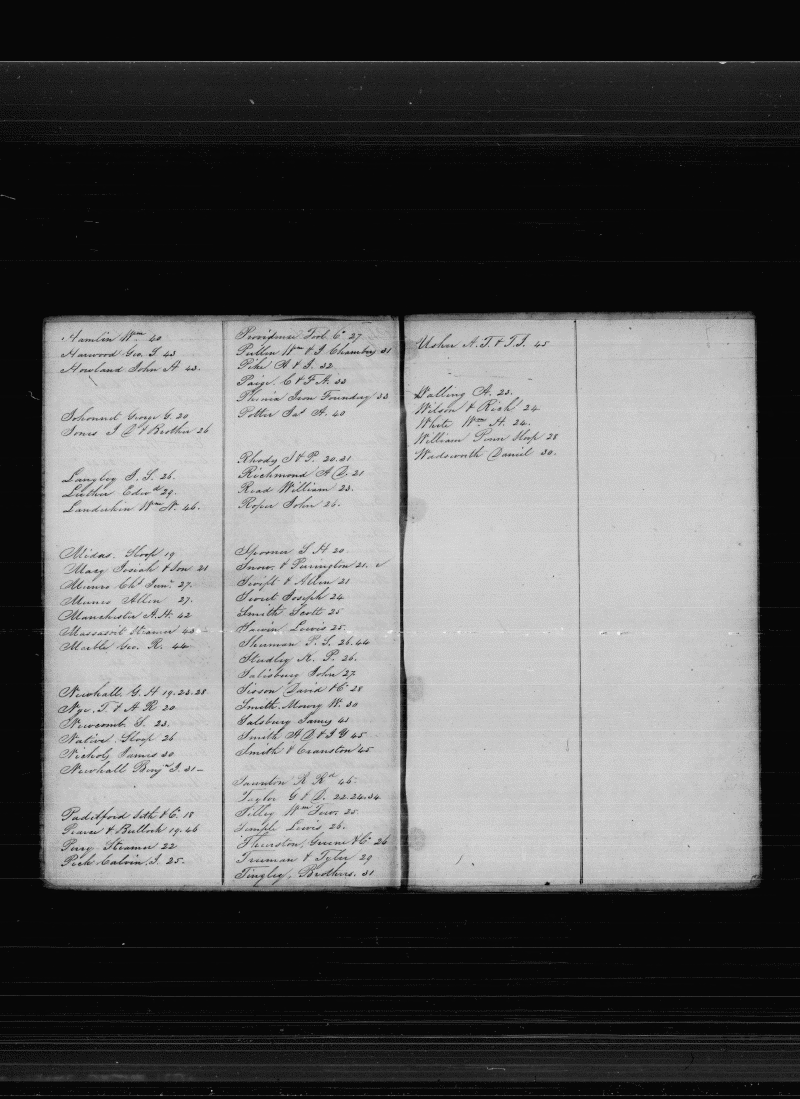 Hamlin Wm 40
Harwood Geo. G. 43
Howland John A 43.
Johonnet George G. 20
Jones J D & Brother 26
Langley J. S. 26.
Luther Edwd 29.
Landerkin Wm N. 46.
Midas. Sloop 19
Macy Josiah & Son 21
Munro Chs Junr. 27.
Munro Allen 27.
Manchester A. H. 42
Massasoit Steamer 43
Marble Geo. R. 44
Newhall. G. H 19.23.28
Nye. T. & A R 20
Newcomb. S. 23.
Native Sloop 26
Nichols James 30
Newhall Benjn J. 31—
Paditford Seth & Co 18
Pearce & Bullock 19.46
Perry Steamer 22
Peck Calvin. J. 25.
Providence Tool Co 27
Pullen Wm & J Chambers 31
Pike A & J. 32.
Paige. C & F A. 33
Phenix Iron Foundry 33
Potter Jas A. 40
Rhody J & P. 20.21
Richmond A D. 21
Read William 23.
Roper John 26.
Spooner S H 20.
Snow & Purrington 21.
Swift & Allen 21
Joseph 24
Smith Scott 25
Sawin Lewis 25.
Sherman P. S. 26.44
Studley K. P. 26.
Salisbury John 27
Sisson David & Co 28
Smith. Mowry W. 30
Salsbury James 43
Smith A D & J Y 45
Smith & Cranston 45
Taunton R Rd 46.
Taylor G & D. 22.24.34
Tilley Wm Few. 25.
Temple Lewis 26.
Thurston, Greene & Co 26
Truman & Tyler 29
Tingley, Brothers. 31
Usher A. T. & T. J. 45
Walling A. 23.
Wilson & Rich 24
White Wm H. 24.
William Penn Sloop 28
Wadsworth Daniel 30.